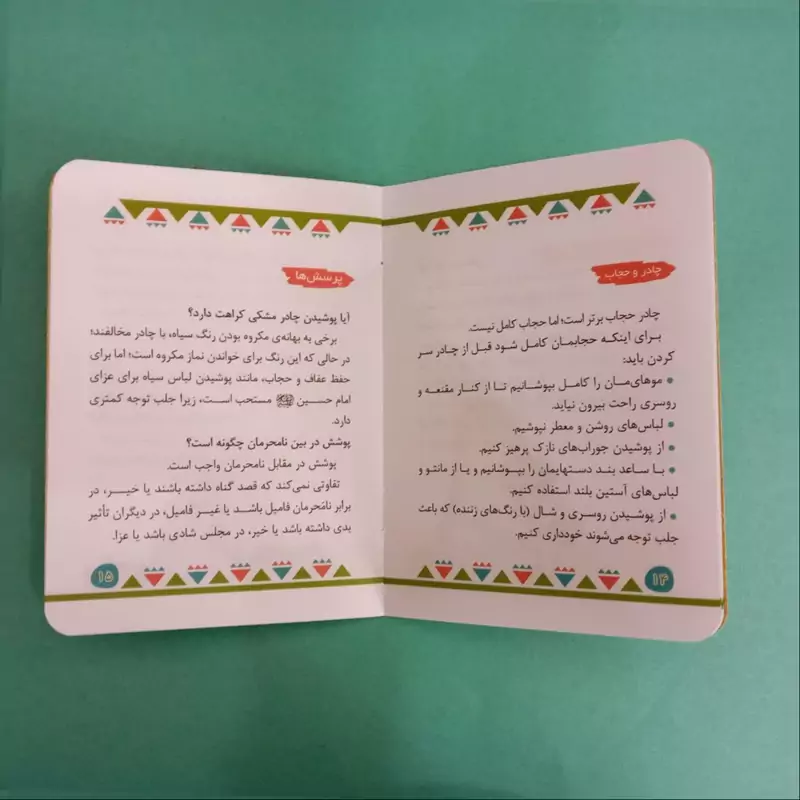 چادر و حجاب
چادر حجاب برتر است؛ اما حجاب کامل نیست.
برای اینکه حجابمان کامل شود قبل از چادر سر
کردن باید:
● موهای‌مان را کامل بپوشانیم تا از کنار مقنعه و
روسری راحت بیرون نیاید.
● لباس‌های روشن و معطر نپوشیم.
● از پوشیدن جوراب‌های نازک پرهیز کنیم.
● با ساعد بند دستهایمان را بپوشانیم و یا از مانتو و
لباس‌های آستین بلند استفاده کنیم.
● از پوشیدن روسری و شال (با رنگ‌های زننده) که باعث
جلب توجه می‌شوند خودداری کنیم.
۱۴
پرسش‌ها
آیا پوشیدن چادر مشکی کراهت دارد؟
برخی به بهانه‌ی مکروه بودن رنگ سیاه، با چادر مخالفند؛
در حالی که این رنگ برای خواندن نماز مکروه است؛ اما برای
حفظ عفاف و حجاب، مانند پوشیدن لباس سیاه برای عزای
امام حسین مستحب است، زیرا جلب توجه کمتری
دارد.
پوشش در بین نامحرمان چگونه است؟
پوشش در مقابل نامحرمان واجب است.
تفاوتی نمی‌کند که قصد گناه داشته باشند یا خیر، در
برابر نامَحرمان فامیل باشد یا غیر فامیل، در دیگران تأثیر
بدی داشته باشد یا خیر، در مجلس شادی باشد یا عزا.
۱۵